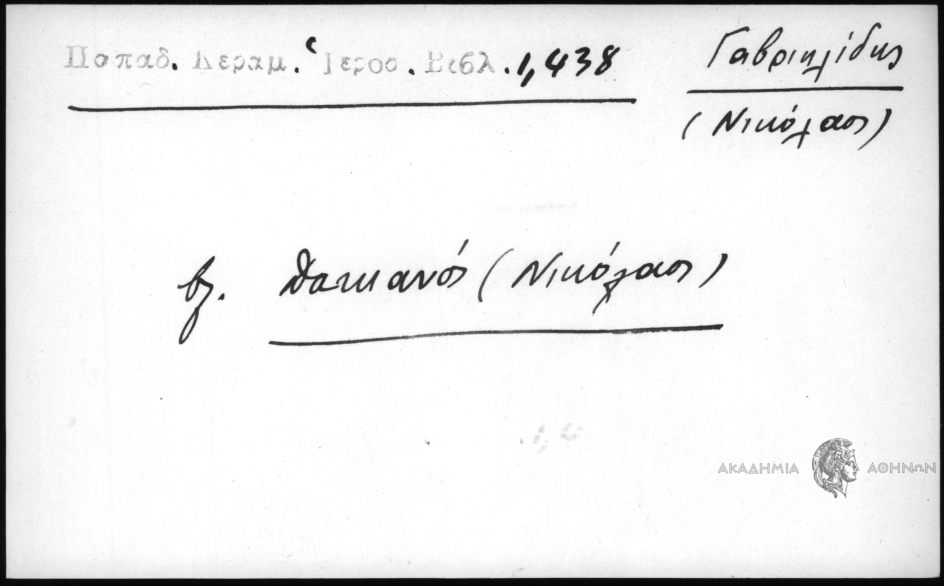 Παπαδ. Κεραμ. Ἱεροσ. Βιβλ. 1,438
Γαβριηλίδης
(Νικόλαος)
βλ. Πατκανός (Νικόλαος)
ΑΚΑΔΗΜΙΑ ΑΘΗΝΩΝ